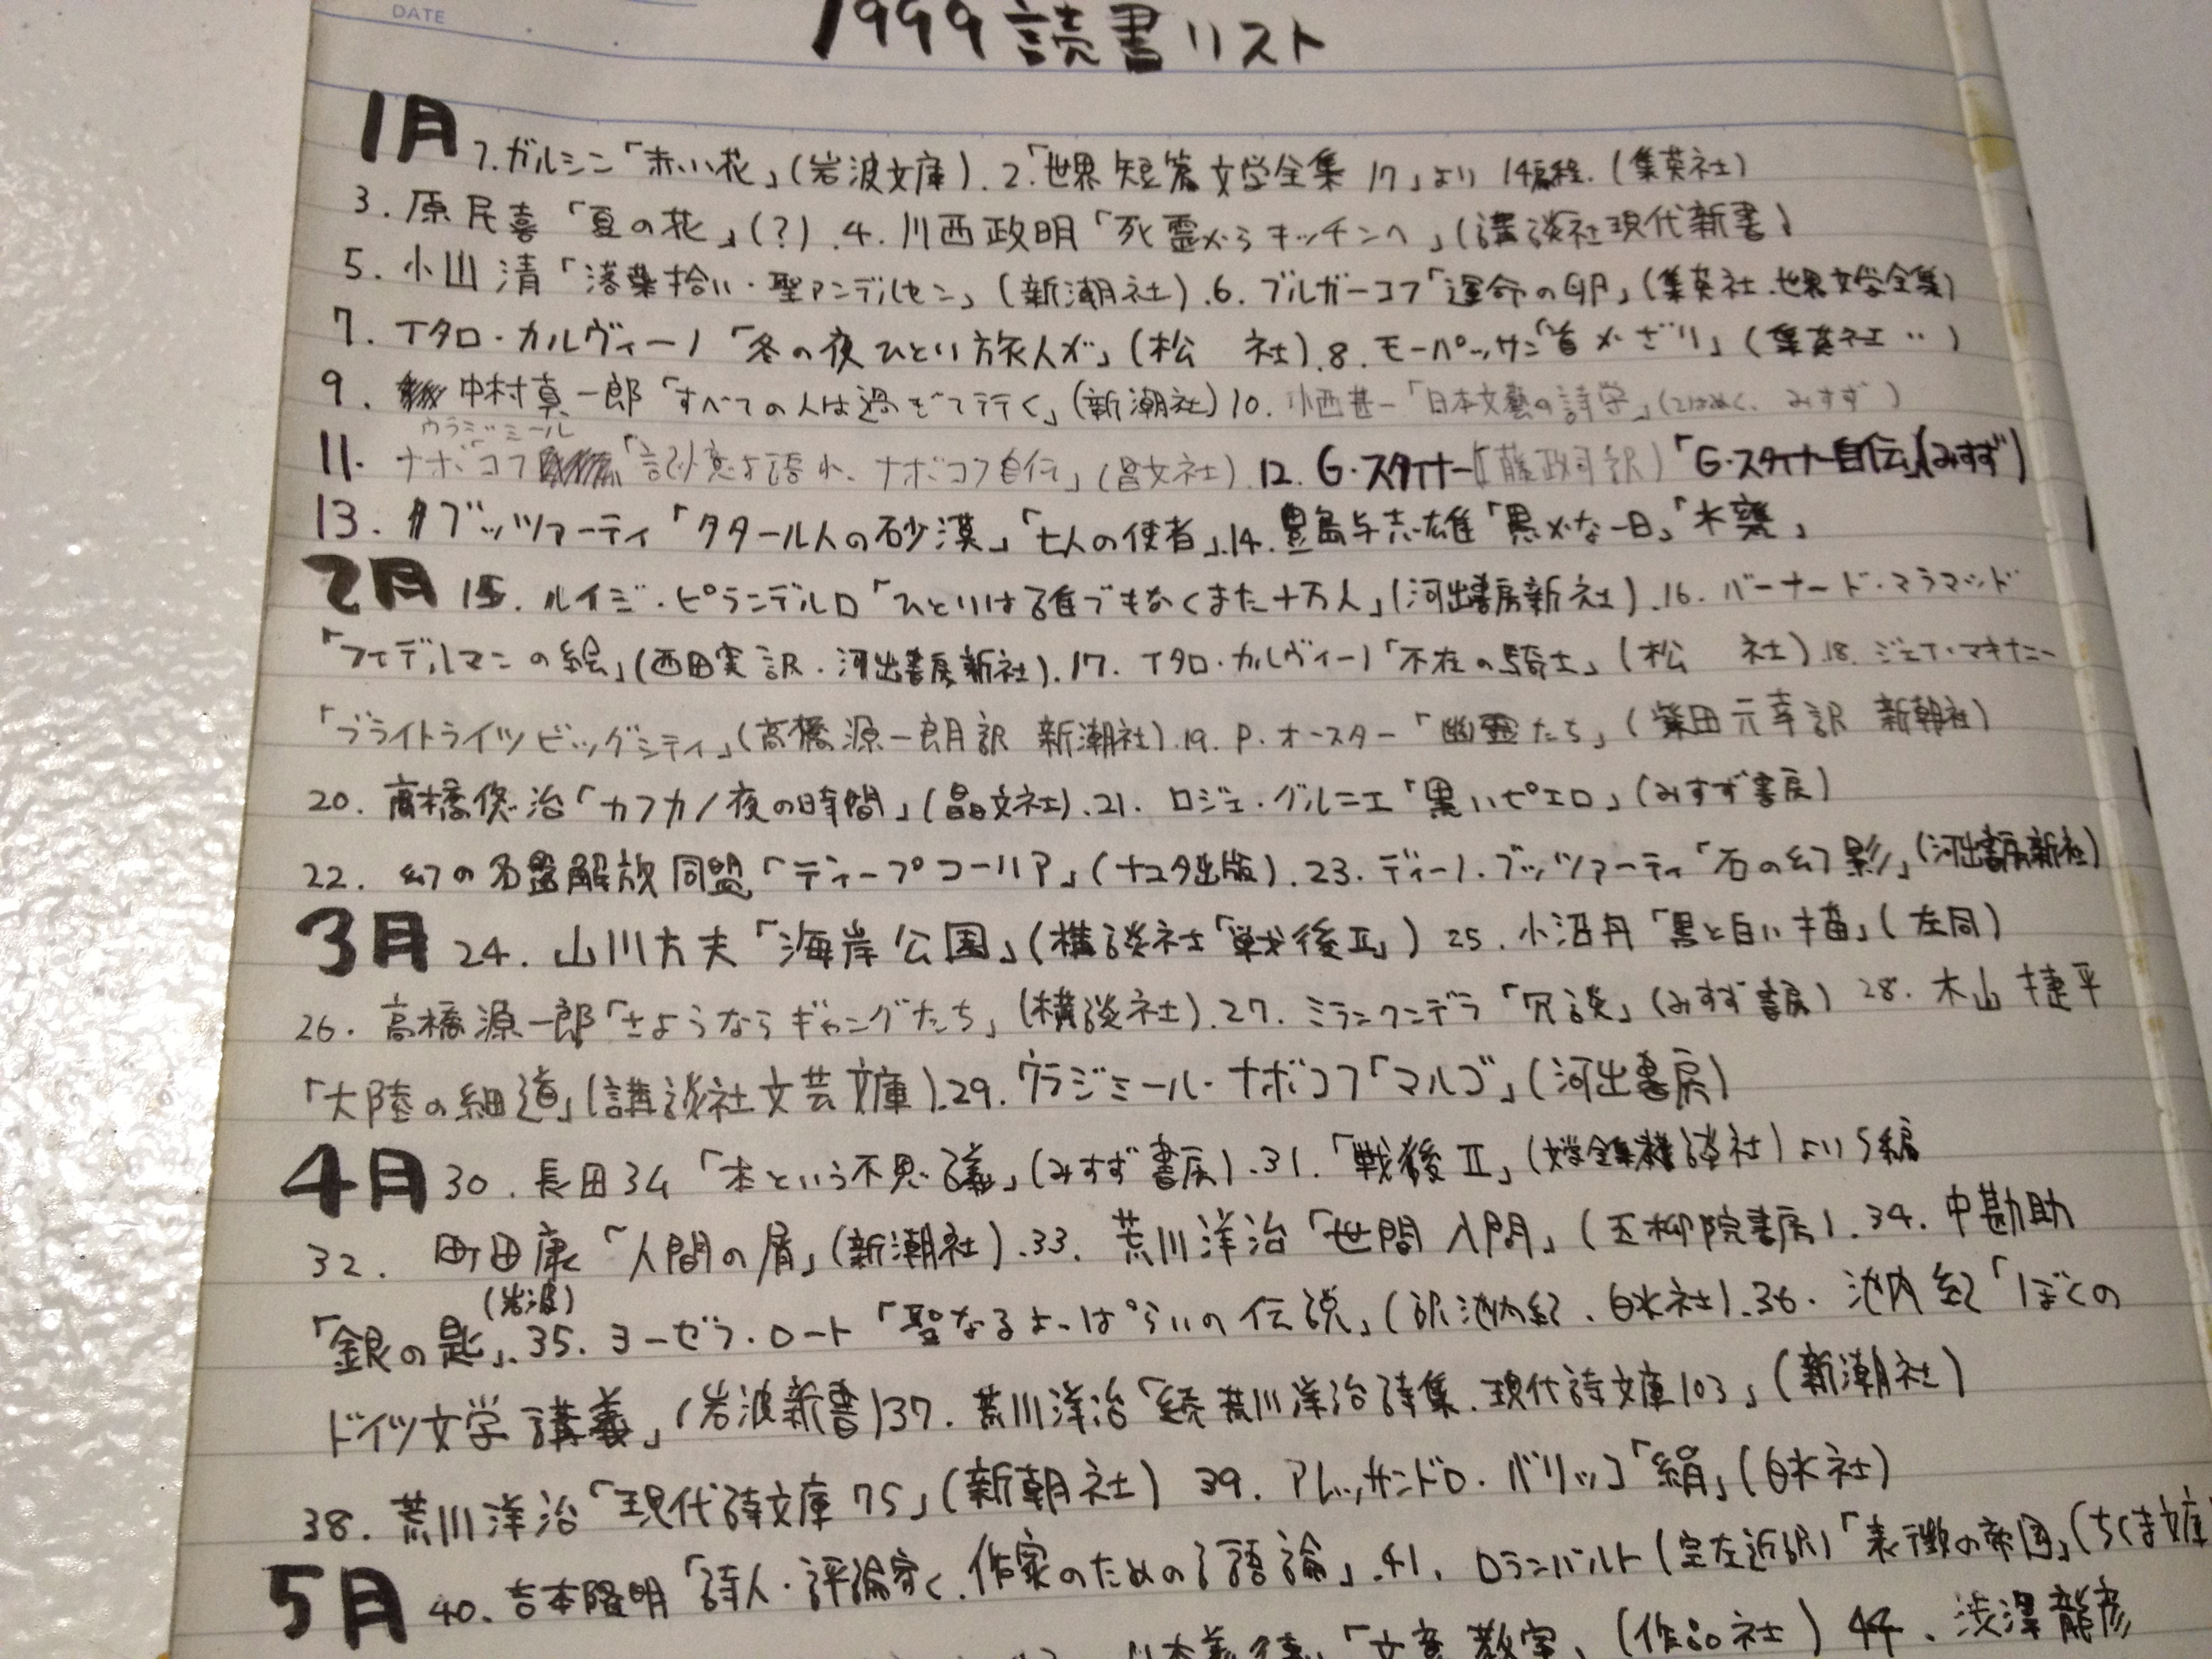 DATE
1999 読書リスト
1月 1.ガルシン「赤い花」(岩波文庫).2.「世界短篇文学全集 17」より 14編程.(集英社)
3.原民喜「夏の花」(?).4.川西政明「死霊からキッチンへ」(講談社現代新書)
5.小川 清「落葉拾い・聖アンデルセン」(新潮社).6.ブルガーコフ「運命の卵」(集英社.世界文学全集)
7.イタロ・カルヴィーノ「冬の夜ひとり旅人が」(松 社).8.モーパッサン「首かざり」(集英社‥)
9.中村真一郎「すべての人は過ぎて行く」(新潮社)10.小西甚一「日本文藝の詩学」(みすず)
11.ウラジミール ナボコフ「記憶よ語れ、ナボコフ自伝」(晶文社).12.G・スタイナー(藤政司訳)「G・スタイナー自伝」(みすず)
13.ブッツァーティ「タタール人の砂漠」「七人の使者」.14.豊島与志雄「黒かな一日」「水甕」
2月 15.ルイジ・ピランデルロ「ひとりは誰でもなくまた十万人」(河出書房新社).16.バーナード・マラマッド
「フィデルマンの絵」(西田実訳・河出書房新社).17.イタロ・カルヴィーノ「不在の騎士」(松 社).18.ジェイ・マキナニー
「ブライトライツビッグシティ」(高橋源一朗訳 新潮社).19.P.オースター「幽霊たち」(柴田元幸訳 新朝社)
20.高橋悠治「カフカ/夜の時間」(晶文社).21.ロジェ・グルニエ「黒いピエロ」(みすず書房)
22.幻の名盤解放同盟「ディープコーリア」(ナユタ出版).23.ディーノ・ブッツァーティ「石の幻影」(河出書房新社)
3月 24.山川方夫「海岸公園」(横談社「戦後II」) 25.小沼丹「黒と白い猫」(左同)
26.高橋源一郎「さようならギャングたち」(横談社).27.ミランクンデラ「冗談」(みすず書房) 28.木山捷平
「大陸の細道」(講談社文芸文庫).29.ウラジミール・ナボコフ「マルゴ」(河出書房)
4月 30.長田弘「本という不思議」(みすず書房).31.「戦後II」(文学全集 談社)より5編
32.町田康「人間の屑」(新潮社).33.荒川洋治「世間入門」(五柳院書房).34.中勘助
「銀の匙」(岩波).35.ヨーゼフ・ロート「聖なるよっぱらいの伝説」(訳池内紀、白水社).36.池内紀「ぼくの
ドイツ文学講義」(岩波新書)37.荒川洋治「続荒川洋治詩集.現代詩文庫103」(新潮社)
38.荒川洋治「現代詩文庫75」(新朝社) 39.アレッサンドロ・バリッコ「絹」(白水社)
5月 40.吉本隆明「詩人・評論家・作家のための言語論」.41.ロランバルト(宗左近訳)「表徴の帝国」(ちくま文庫
「文章教室」(作品社) 44.渋澤龍彦